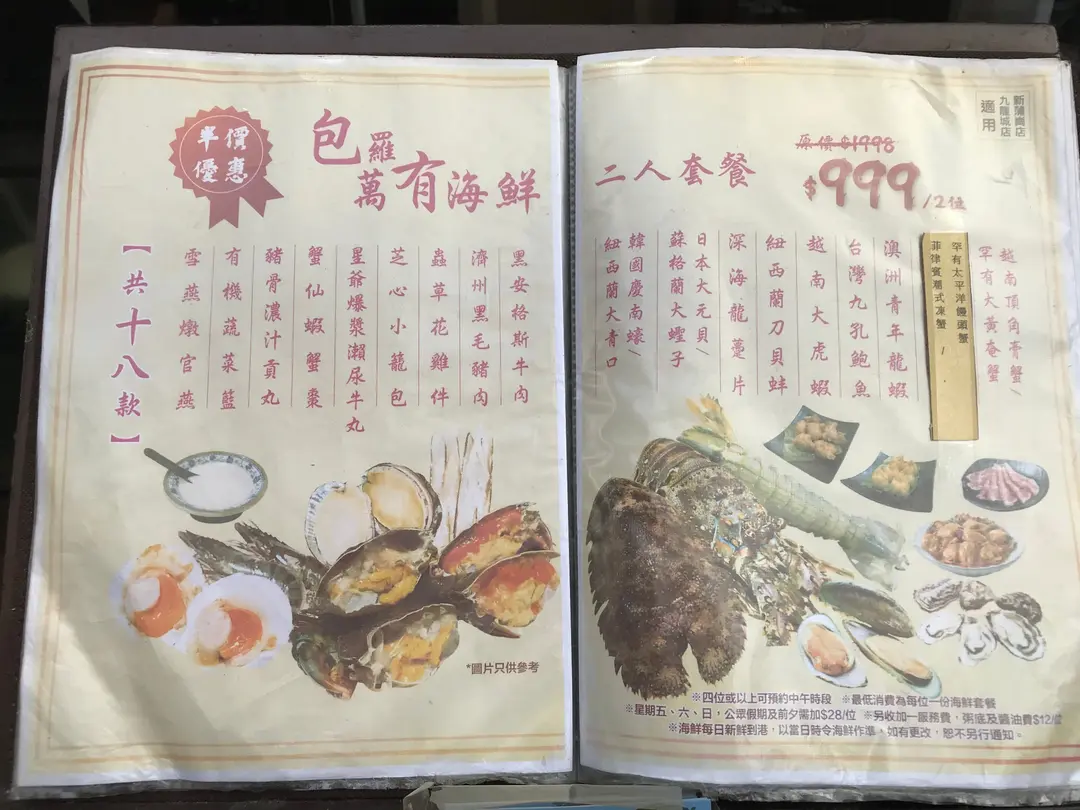 半價
優惠
包羅
萬有海鮮
黑安格斯牛肉
濟州黑毛豬肉
蟲草花雞件
芝心小籠包
星爺爆漿瀨尿牛丸
蟹仙蝦蟹棗
豬骨濃汁貢丸
有機蔬菜籃
雪燕燉官燕
【共十八款】
*圖片只供參考
新蒲崗店
九龍城店
適用
二人套餐
原價$1998
$999/2位
越南頂角膏蟹/
罕有大黃奄蟹
罕有太平洋饅頭蟹
菲律賓潮式凍蟹/
澳洲青年龍蝦
台灣九孔鮑魚
越南大虎蝦
紐西蘭刀貝蚌
深海龍躉片
日本大元貝/
蘇格蘭大蟶子
韓國慶南蠔/
紐西蘭大青口
※四位或以上可預約中午時段 ※最低消費為每位一份海鮮套餐
※星期五、六、日，公眾假期及前夕需加$28/位 ※另收加一服務費，粥底及醬油費$12/位
※海鮮每日新鮮到港，以當日時令海鮮作準，如有更改，恕不另行通知。